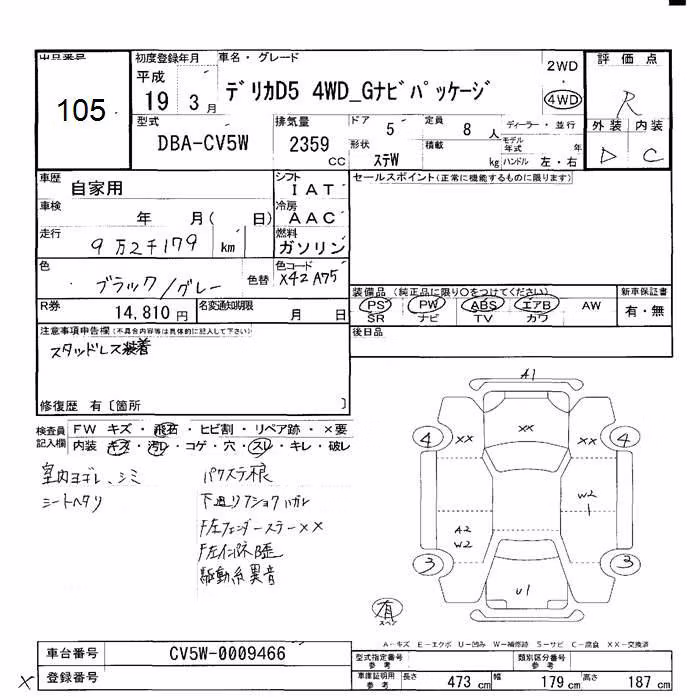 出品番号 初度登録年月 車名・グレード 2WD 評価点
105 平成 デリカD5 4WD_Gナビパッケージ ・ R
19 年 3 月 4WD
型式 排気量 ドア 5 定員 8 人 ディーラー・並行 外装 内装
DBA-CV5W 2359 cc 形状 ステW 積載 kg モデル年式 年 D C
ハンドル 左・右
車歴 自家用 シフト IAT セールスポイント(正常に機能するものに限ります)
車検 年 月( 日) 冷房 AAC
走行 9万2千179 km 燃料 ガソリン
色 ブラック/グレー 色替 色コード X42 A75
装備品(純正品に限り○をつけてください) 新車保証書
R券 14,810円 名変通知期限 月 日 PS PW ABS エアB AW 有・無
SR ナビ TV カワ
注意事項申告欄(不具合内容等は具体的に記入して下さい) 後日品
スタッドレス装着
修復歴 有〔箇所 〕
検査員記入欄 FW キズ・飛石・ヒビ割・リペア跡・×要
内装 キズ・汚レ・コゲ・穴・スレ・キレ・破レ
室内ヨゴレ、シミ
シートヘタリ
下廻リ
異音
A1
4 XX XX XX 4
W2
1
A2
W2
3 3
U1
有
A-キズ E-エクボ U-凹み W-補修跡 S-サビ C-腐食 XX-交換済
車台番号 CV5W-0009466 型式指定番号 参考 類別区分番号 参考
× 登録番号 車庫証明用 参考 長さ 473 cm 幅 179 cm 高さ 187 cm